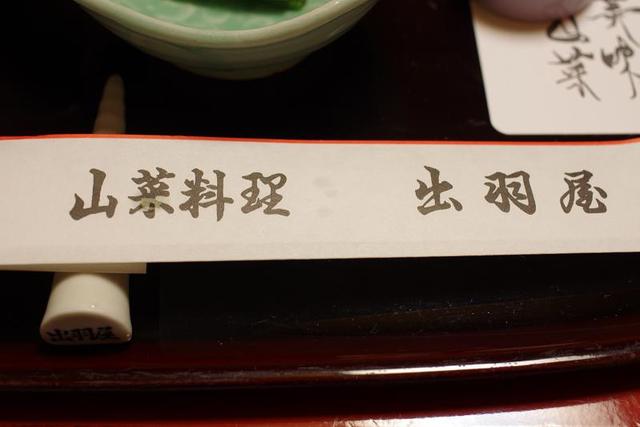 山菜料理 出羽屋
出羽屋
山菜